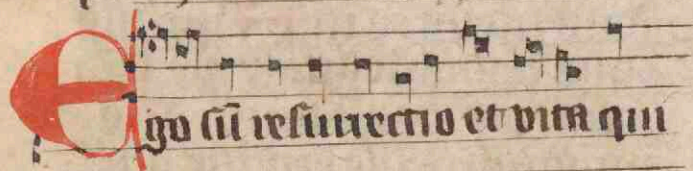 Ego sū resurrectio et vita qui